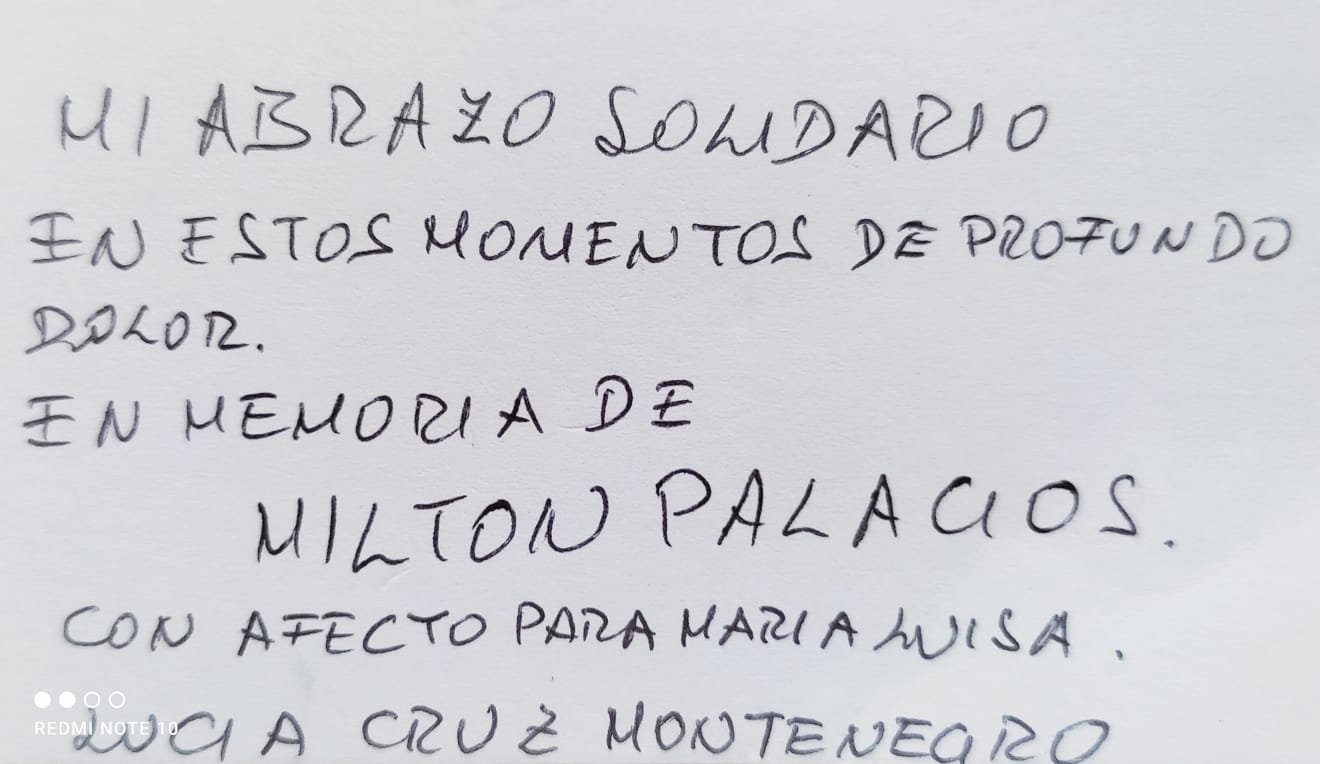 MI ABRAZO SOLIDARIO
EN ESTOS MOMENTOS DE PROFUNDO
DOLOR.
EN MEMORIA DE
MILTON PALACIOS.
CON AFECTO PARA MARIA LUISA.
REDMI NOTE 10
LUCIA CRUZ MONTENEGRO